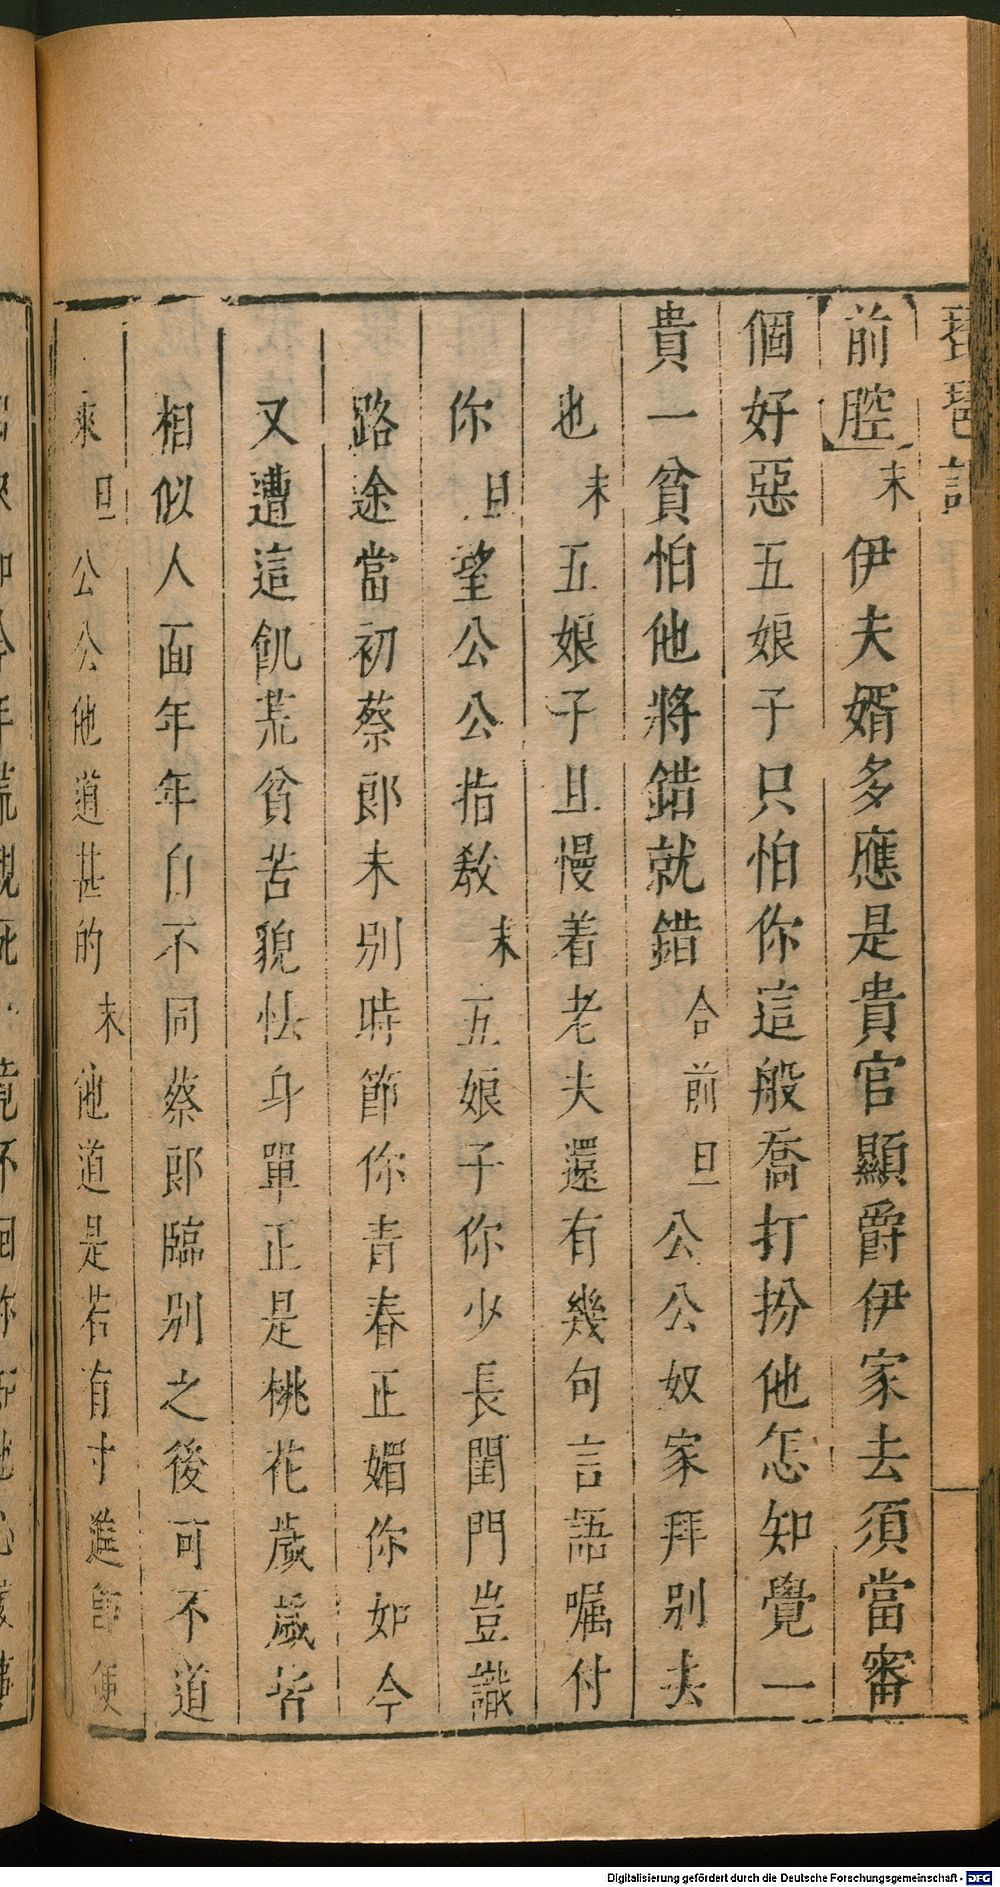 琵琶記
【前腔】末伊夫婿多應是貴官顯爵伊家去須當審
個好惡五娘子只怕你這般喬打扮他怎知覺一
貴一貧怕他將錯就錯合前旦公公奴家拜別去
也末五娘子且慢着老夫還有幾句言語嘱付
你旦望公公指教末五娘子你少長閨門豈識
路途當初蔡郎未別時節你青春正媚你如今
又遭這飢荒貧苦貌怯身單正是桃花歲歲皆
相似人面年年自不同蔡郎臨別之後可不道
來旦公公他道甚的末他道是若有寸進即便
Digitalisierung gefördert durch die Deutsche Forschungsgemeinschaft - DFG